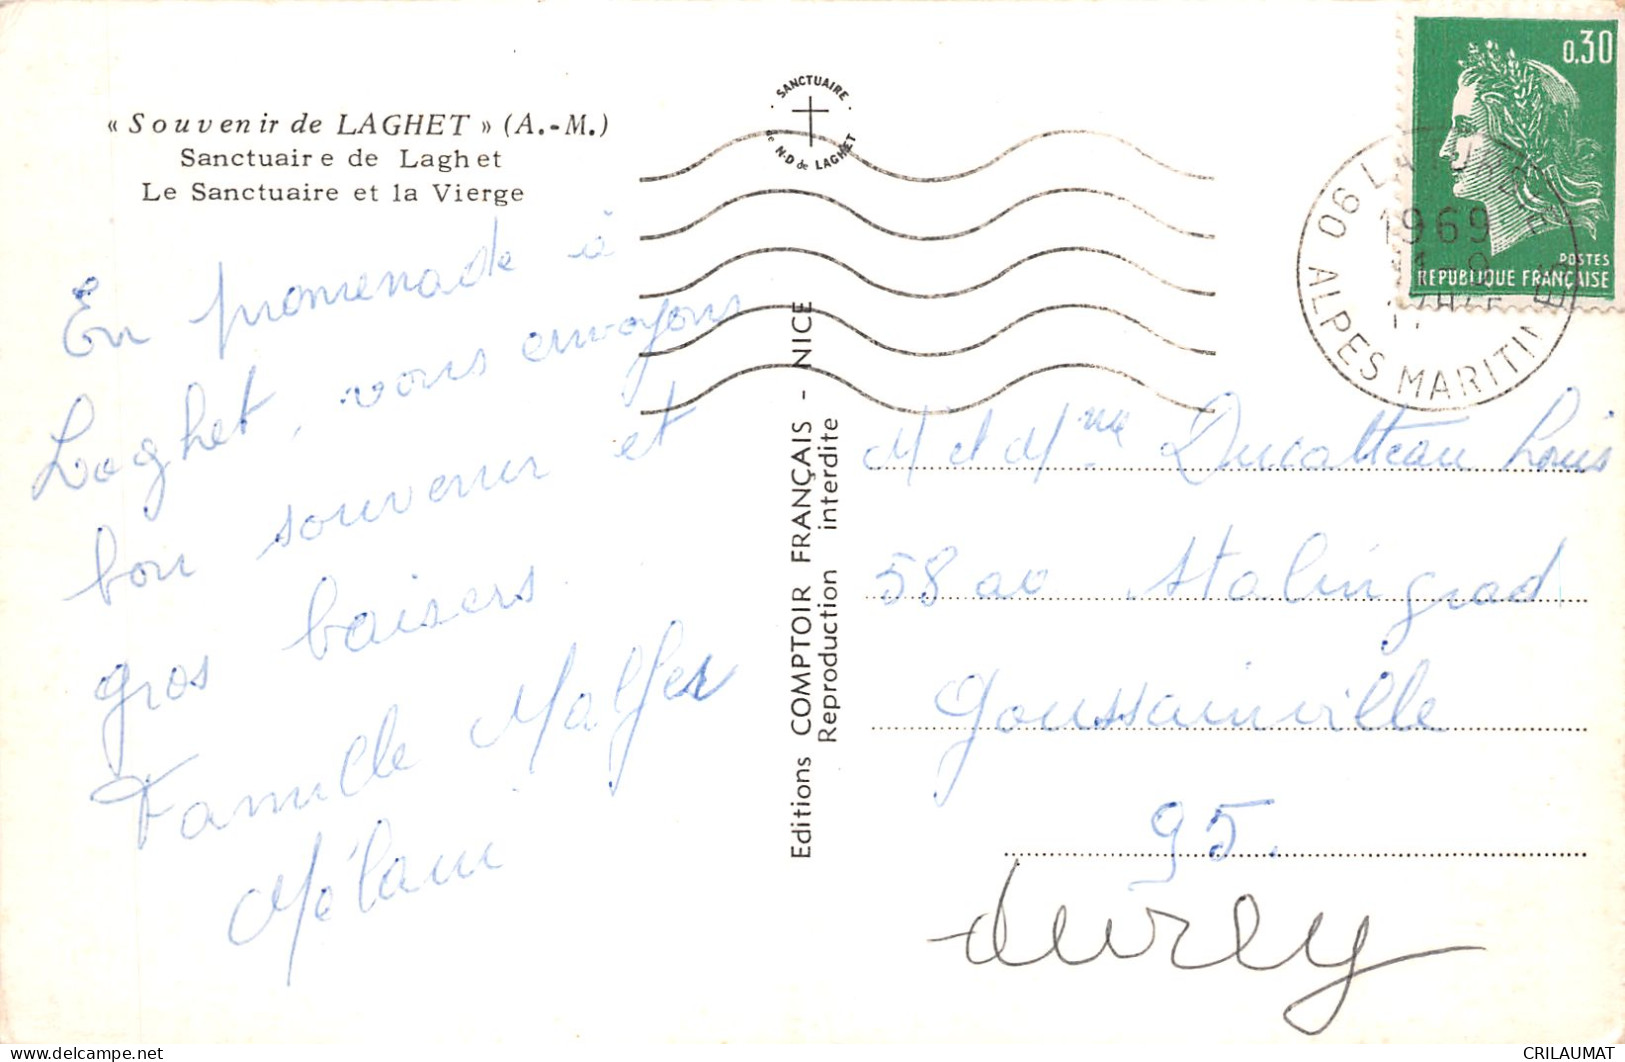 « Souvenir de LAGHET » (A.-M.)
Sanctuaire de Laghet
Le Sanctuaire et la Vierge
SANCTUAIRE
de N-D de LAGHET
0,30
POSTES
REPUBLIQUE FRANÇAISE
06 LA TURBIE
1969
ALPES MARITIMES
En promenade à
Laghet, vous envoyons
bon souvenir et
gros baisers.
Famille Malfer
Mélani
Editions COMPTOIR FRANÇAIS - NICE
Reproduction interdite
M et Mme Ducatteau Louis
58 av Stalingrad
Goussainville
95.
CRILAUMAT